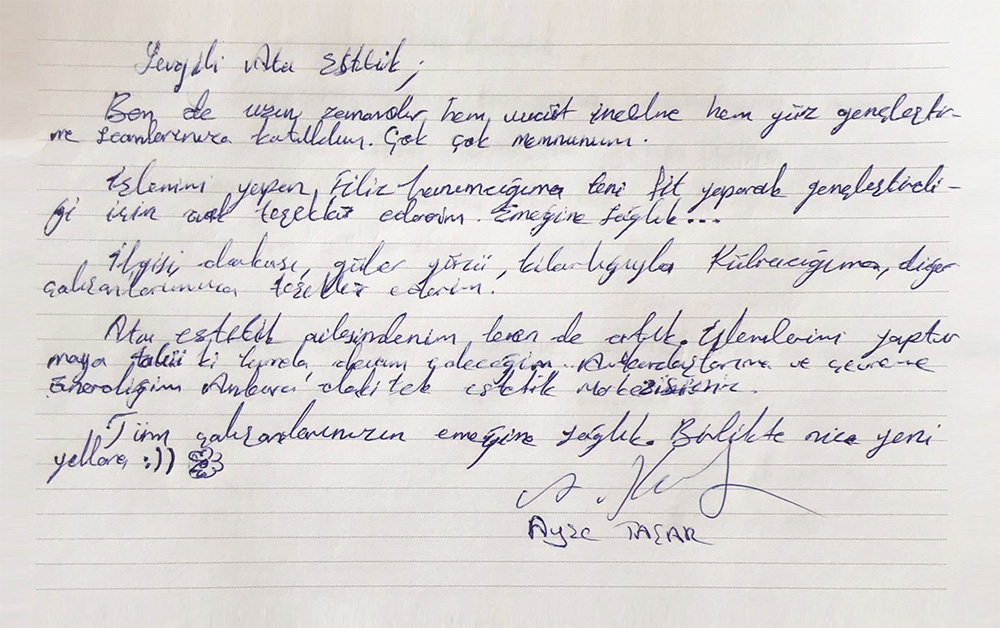 Sevgili Ata Estetik;
Ben de uzun zamandır hem vücüt incelme hem yüz gençleştir-
me seanslarınıza katıldım. Çok çok memnunum.
İşlemini yapan Filiz hanımcığıma teni fit yaparak gençleştirdi-
ği için çok teşekkür ederim. Emeğine sağlık...
İlgisi, alakası, güler yüzü, tatlılığıyla Kübracığıma, diğer
çalışanlarınıza teşekkür ederim.
Ata estetik ailesindenim ben de artık. İşlemlerimi yaptır
maya tabii ki burada devam edeceğim. Arkadaşlarıma ve çevreme
önerdiğim Ankara'daki tek estetik merkezisiniz.
Tüm çalışanlarınızın emeğine sağlık. Birlikte nice yeni
yıllara :))
Ayşe TAŞAR